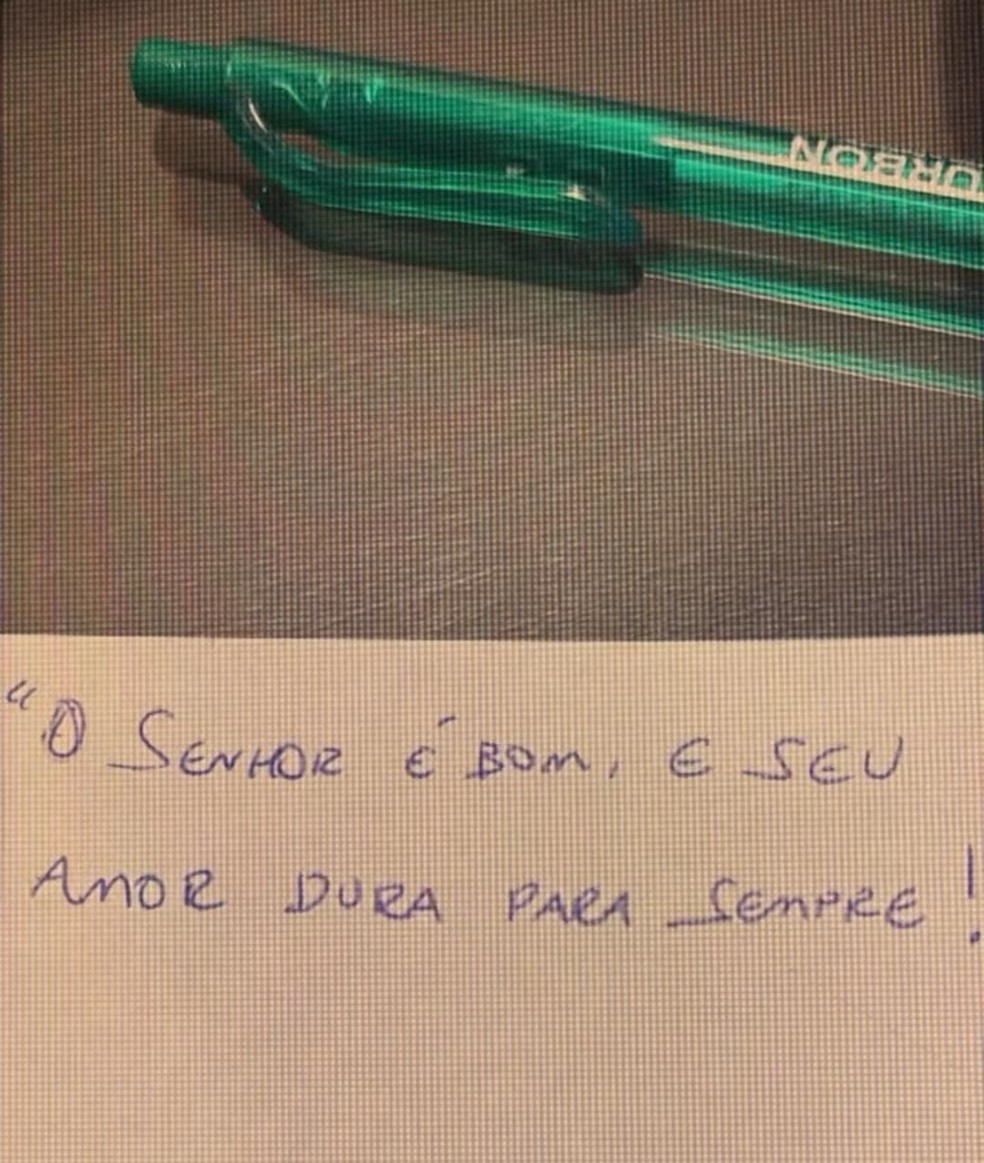 URBON
"O SENHOR É BOM, E SEU
AMOR DURA PARA SEMPRE!